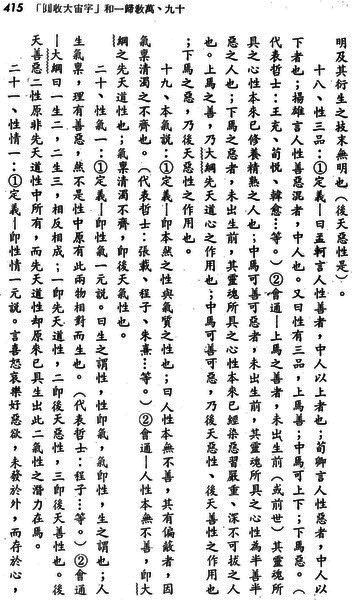 415　「回收大宙宇」和一歸教萬、九十
明及其衍生之技末無明也（後天惡性）。
十八、性三品：①定義—曰孟軻言人性善者，中人以上者也；荀卿言人性惡者，中人以
下者也；揚雄言人性善惡混者，中人也。又曰性有三品，上焉善；中焉可上下；下焉惡。（
代表哲士：王充、荀悅、韓愈…等。）②會通—上焉之善者，未出生前（或前世）其靈魂所
具之心性本來已修養精熟之人也；中焉可善可惡者，未出生前，其靈魂所具之心性為半善半
惡之人也；下焉之惡者，未出生前，其靈魂所具之心性本來已經染惡習嚴重、深不可拔之人
也。上焉之善，乃大綱先天道心之作用也；中焉可善可惡，乃後天惡性、後天善性之作用也
；下焉之惡，乃後天惡性之作用也。
十九、本氣說：①定義—即本然之性與氣質之性也；曰人性本無不善，其有偏敝者，因
氣稟清濁之不齊也。（代表哲士：張載、程子、朱熹…等。）②會通—人性本無不善，即大
綱之先天道性也；氣稟清濁不齊，即後天氣性也。
二十、性氣一：①定義—即性氣一元說。曰生之謂性，性即氣，氣即性，生之謂也；人
生氣稟，理有善惡，然不是性中原有此兩物相對而生也。（代表哲士：程子…等。）②會通
—大綱曰一生二，二生三，相反相成；一即先天道性，二即後天惡性，三即後天善性也。後
天善惡二性原非先天道性中所有，而先天道性却原來已具生出此二氣性之潛力在焉。
二十一、性情一：①定義—即性情一元說。言喜怒哀樂好惡欲，未發於外，而存於心，